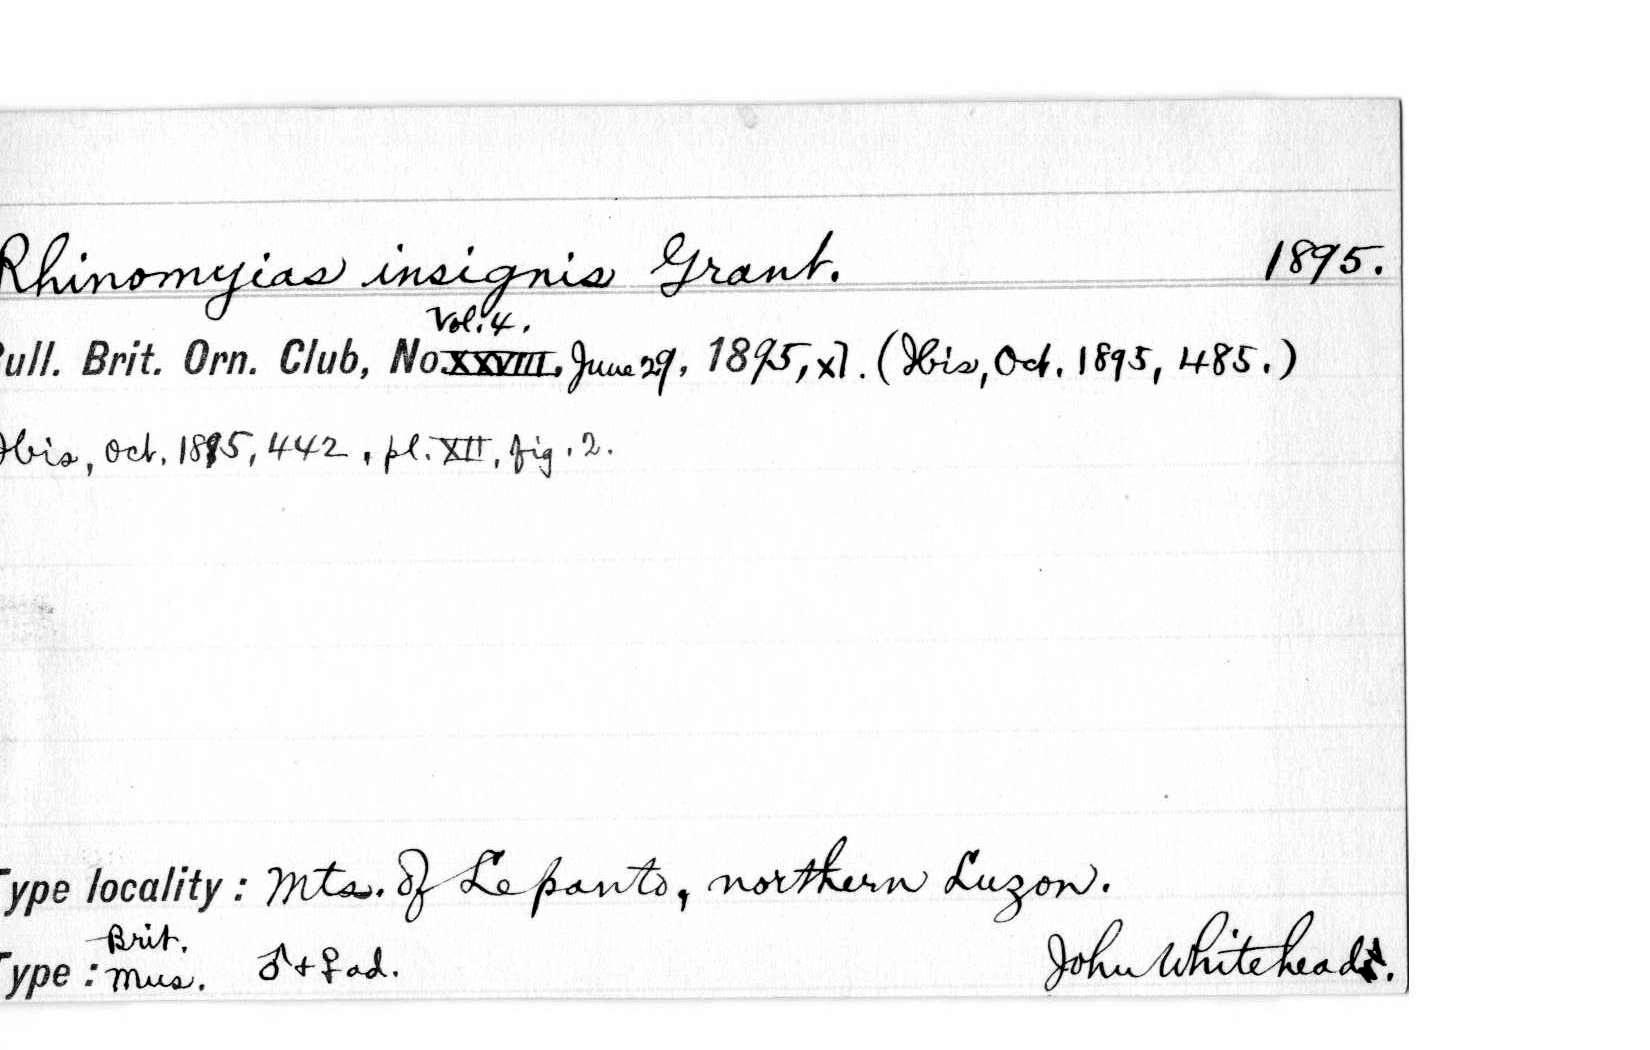 Rhinomyias insignis Grant. 1895.
Vol. 4.
Bull. Brit. Orn. Club, No. XXVIII. June 29, 1895, xl. (Ibis, Oct. 1895, 485.)
Ibis, Oct. 1895, 442, pl. XII, fig. 2.
Type locality: Mts. of Lepanto, northern Luzon.
Brit.
Type: Mus. ♂ + ♀ ad. John Whitehead.